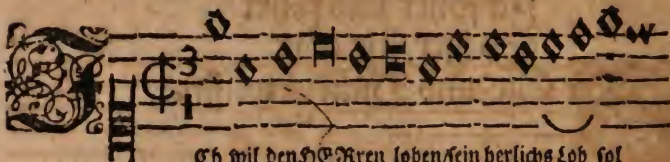 3
1
ICh wil den HERren loben/sein herlichs Lob sol